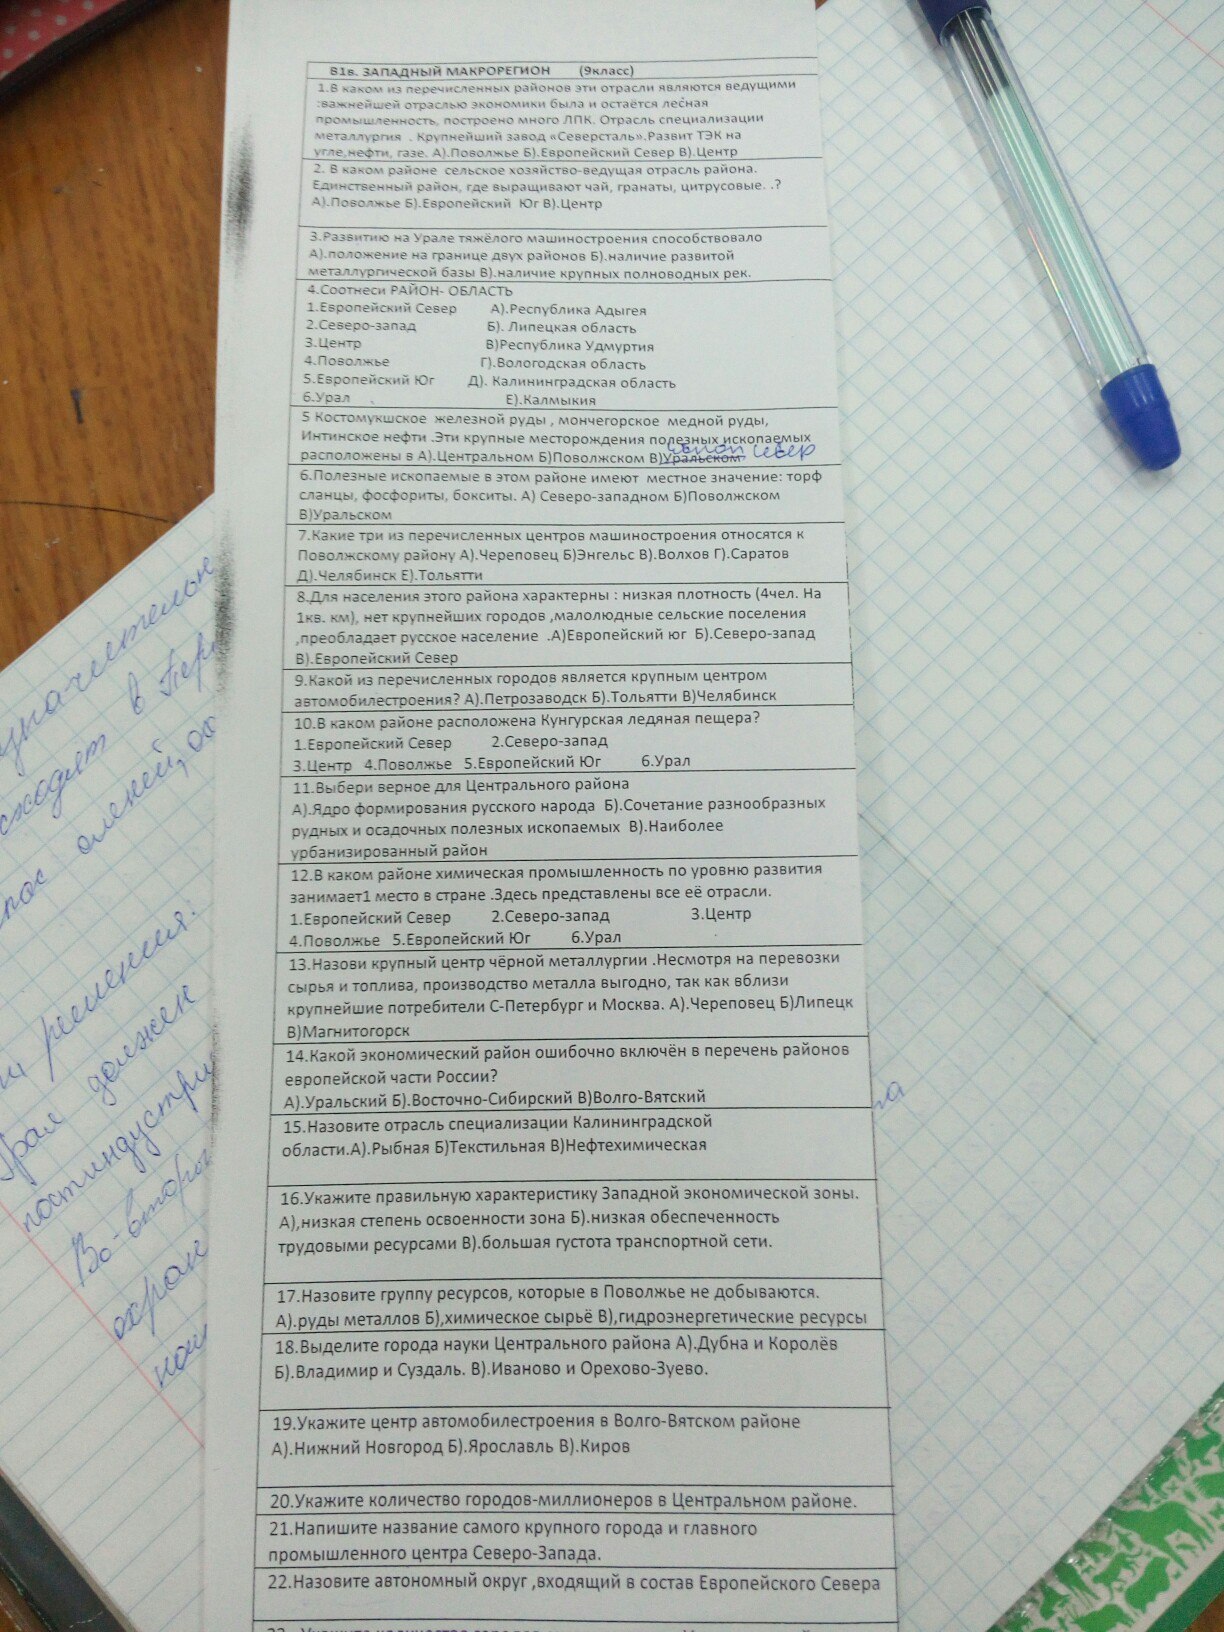 В1в. ЗАПАДНЫЙ МАКРОРЕГИОН (9класс)
1.В каком из перечисленных районов эти отрасли являются ведущими
:важнейшей отраслью экономики была и остаётся лесная
промышленность, построено много ЛПК. Отрасль специализации
металлургия . Крупнейший завод «Северсталь».Развит ТЭК на
угле,нефти, газе. А).Поволжье Б).Европейский Север В).Центр
2. В каком районе сельское хозяйство-ведущая отрасль района.
Единственный район, где выращивают чай, гранаты, цитрусовые. .?
А).Поволжье Б).Европейский Юг В).Центр
3.Развитию на Урале тяжёлого машиностроения способствовало
А).положение на границе двух районов Б).наличие развитой
металлургической базы В).наличие крупных полноводных рек.
4.Соотнеси РАЙОН- ОБЛАСТЬ
1.Европейский Север А).Республика Адыгея
2.Северо-запад Б). Липецкая область
3.Центр В)Республика Удмуртия
4.Поволжье Г).Вологодская область
5.Европейский Юг Д). Калининградская область
6.Урал Е).Калмыкия
5 Костомукшское железной руды , мончегорское медной руды,
Интинское нефти .Эти крупные месторождения полезных ископаемых
расположены в А).Центральном Б)Поволжском В)Уральском север
6.Полезные ископаемые в этом районе имеют местное значение: торф
сланцы, фосфориты, бокситы. А) Северо-западном Б)Поволжском
В)Уральском
7.Какие три из перечисленных центров машиностроения относятся к
Поволжскому району А).Череповец Б)Энгельс В).Волхов Г).Саратов
Д).Челябинск Е).Тольятти
8.Для населения этого района характерны : низкая плотность (4чел. На
1кв. км), нет крупнейших городов ,малолюдные сельские поселения
,преобладает русское население .А)Европейский юг Б).Северо-запад
В).Европейский Север
9.Какой из перечисленных городов является крупным центром
автомобилестроения? А).Петрозаводск Б).Тольятти В)Челябинск
10.В каком районе расположена Кунгурская ледяная пещера?
1.Европейский Север 2.Северо-запад
3.Центр 4.Поволжье 5.Европейский Юг 6.Урал
11.Выбери верное для Центрального района
А).Ядро формирования русского народа Б).Сочетание разнообразных
рудных и осадочных полезных ископаемых В).Наиболее
урбанизированный район
12.В каком районе химическая промышленность по уровню развития
занимает1 место в стране .Здесь представлены все её отрасли.
1.Европейский Север 2.Северо-запад 3.Центр
4.Поволжье 5.Европейский Юг 6.Урал
13.Назови крупный центр чёрной металлургии .Несмотря на перевозки
сырья и топлива, производство металла выгодно, так как вблизи
крупнейшие потребители С-Петербург и Москва. А).Череповец Б)Липецк
В)Магнитогорск
14.Какой экономический район ошибочно включён в перечень районов
европейской части России?
А).Уральский Б).Восточно-Сибирский В)Волго-Вятский
15.Назовите отрасль специализации Калининградской
области.А).Рыбная Б)Текстильная В)Нефтехимическая
16.Укажите правильную характеристику Западной экономической зоны.
А),низкая степень освоенности зона Б).низкая обеспеченность
трудовыми ресурсами В).большая густота транспортной сети.
17.Назовите группу ресурсов, которые в Поволжье не добываются.
А).руды металлов Б),химическое сырьё В),гидроэнергетические ресурсы
18.Выделите города науки Центрального района А).Дубна и Королёв
Б).Владимир и Суздаль. В).Иваново и Орехово-Зуево.
19.Укажите центр автомобилестроения в Волго-Вятском районе
А).Нижний Новгород Б).Ярославль В).Киров
20.Укажите количество городов-миллионеров в Центральном районе.
21.Напишите название самого крупного города и главного
промышленного центра Северо-Запада.
22.Назовите автономный округ ,входящий в состав Европейского Севера
решения:
должен
постиндустри
Во-вторы
охран